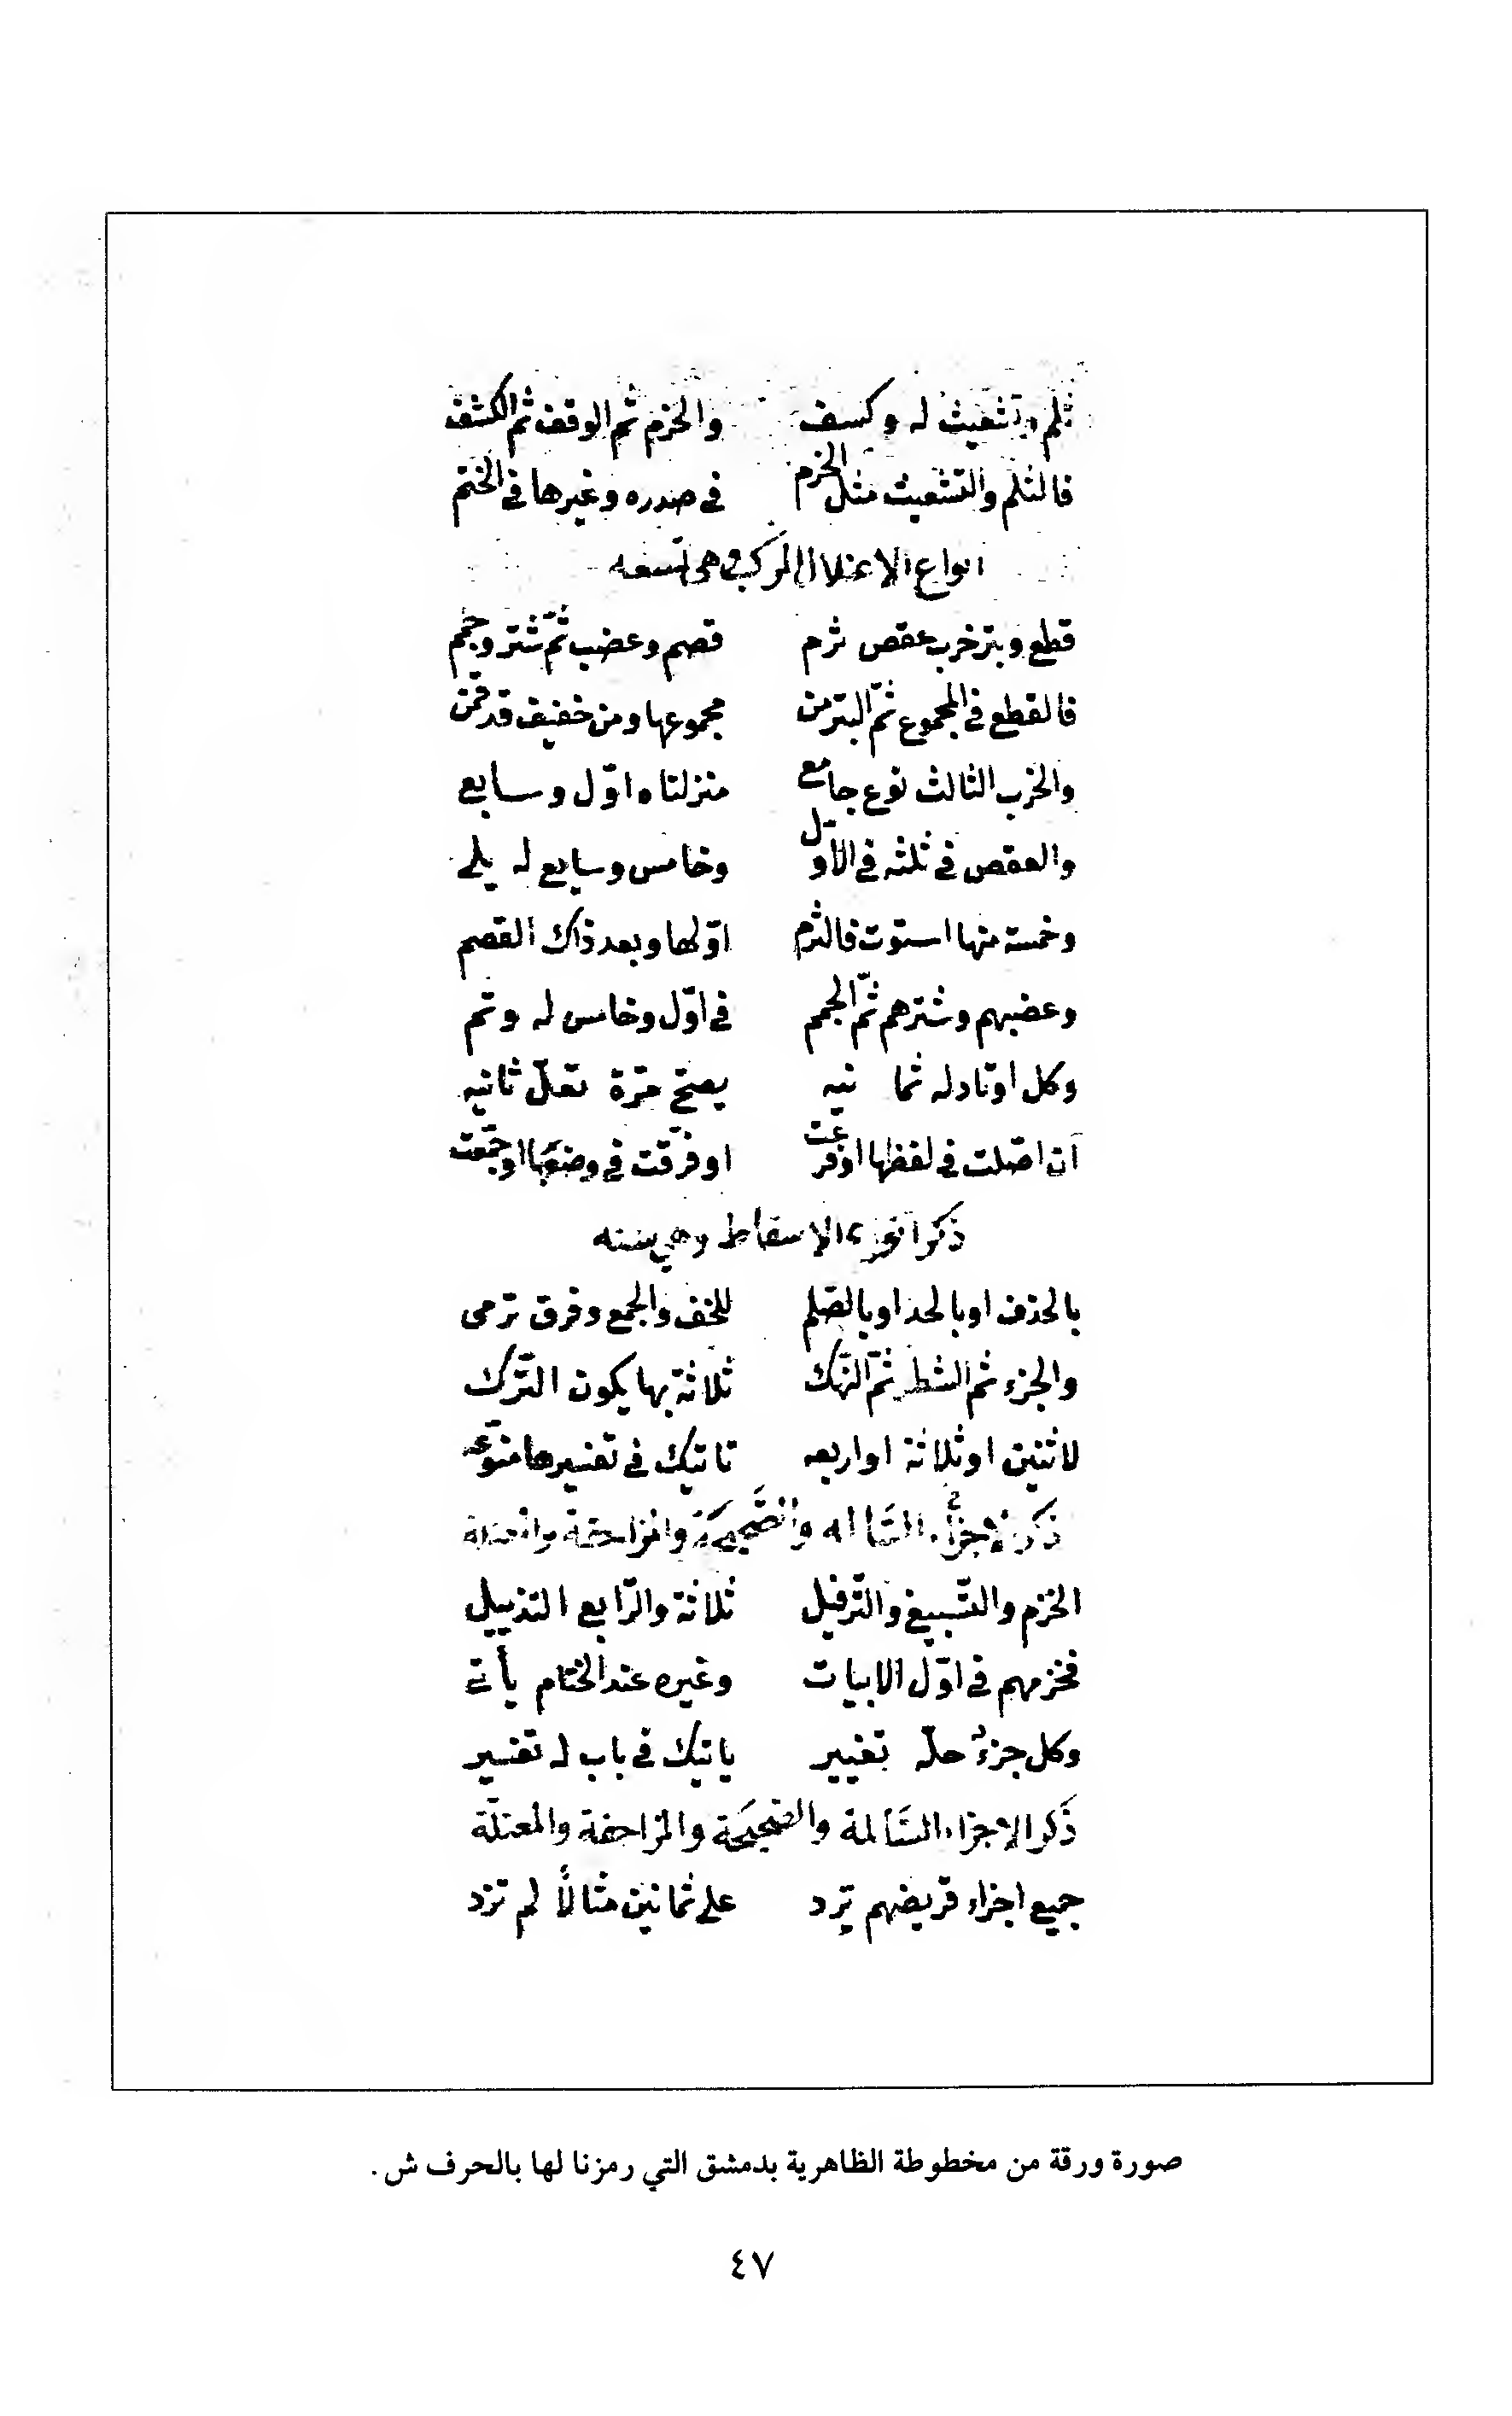 ثلم وتشعيث له وكسف والخزم ثم الوقف ثم الكشف
فالثلم والتشعيث مثل الخرم في صدره وغيرها في الختم
انواع الاعتلال المركب وهي تسعه
قطع وبتر خرب عقص ثرم قصم وعضب ثمّ شتر وجمم
فالقطع في المجموع ثمّ البتر من مجموعها ومن خفيف قد قمن
والخرب الثالث نوع جامع منزلتاه اوّل وسابع
والعقص في ثلثه في الاوّل وخامس وسابع له يلي
وخمسة منها استوت فالثرم اوّلها وبعد ذاك القصم
وعضبهم وشترهم ثمّ الجمم في اوّل وخامس له وتم
وكل اوتاد له ثما نيه يصحّ مرّة تعلّ ثانيه
ان اصّلت في لفظها او فرّعت او فرّقت في وضعها او جمّعت
ذكر الاسقاط وهي سته
بالحذف او بالحد او بالصّلم للخف والجمع وفرق ترمى
والجزء ثم الشطر ثمّ النّهك ثلاثة بها يكون التّرك
لاثنين او ثلاثة او اربعه تاتيك في تفسيرها منوّعه
ذكر الاجزاء السّالمه والصّحيحة والمزاحفة والمعتلة
الخزم والتّسبيغ والتّرفيل ثلاثة والرّابع التذييل
فخزمهم في اوّل الابيات وغيره عند الختام يأتي
وكل جزءٍ حلّه تغيير ياتيك في باب له تفسير
ذكر الاجزاء السّالمة والصّحيحة والمزاحفة والمعتلّة
جميع اجزاء قريضهم ترد على ثمانين مثالًا لم تزد
صورة ورقة من مخطوطة الظاهرية بدمشق التي رمزنا لها بالحرف ش .
٤٧